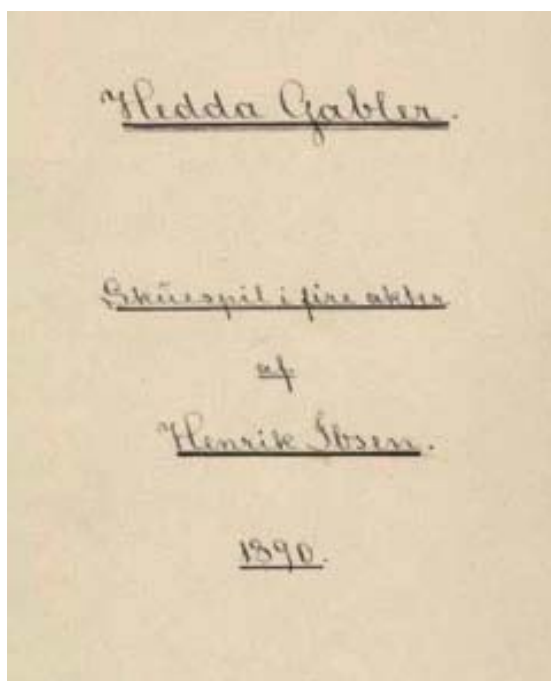 Hedda Gabler.
Skuespil i fire akter
af
Henrik Ibsen.
1890.